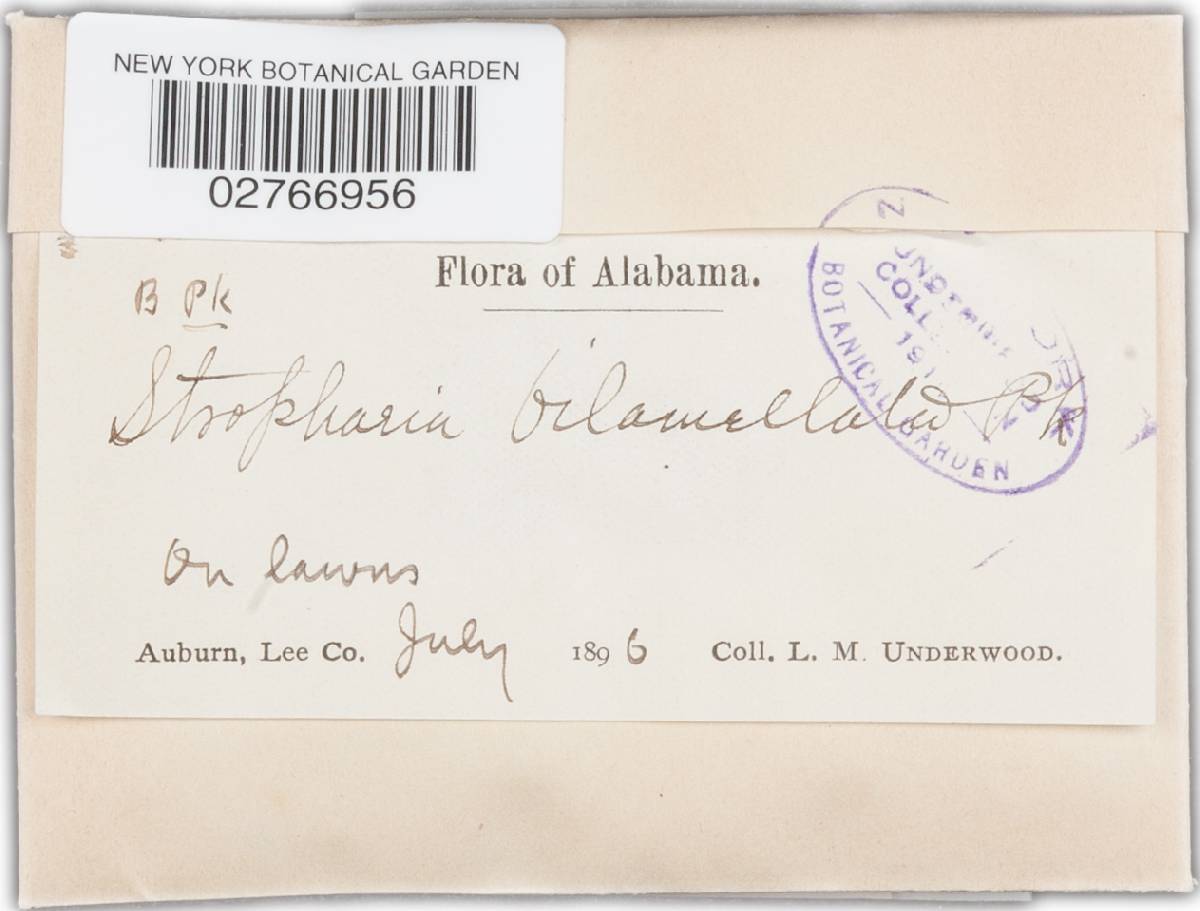 NEW YORK BOTANICAL GARDEN
02766956
Flora of Alabama.
B Pk
Stropharia bilamellata Pk
BOTANICAL GARDEN
COLL
On lawns
Auburn, Lee Co. July 1896 Coll. L. M. UNDERWOOD.